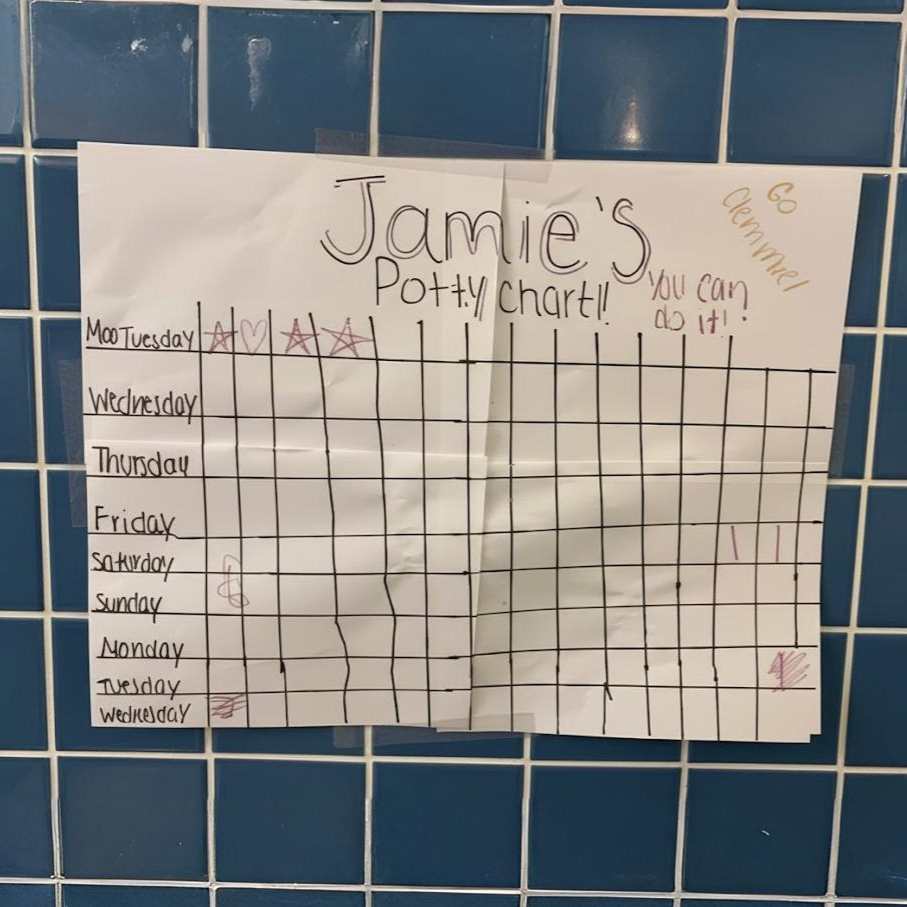 Jamie's
Potty chart!!
You can
do it!!
Go
Clemmie!
Moo Tuesday
Wednesday
Thursday
Friday
Saturday
Sunday
Monday
Tuesday
Wednesday